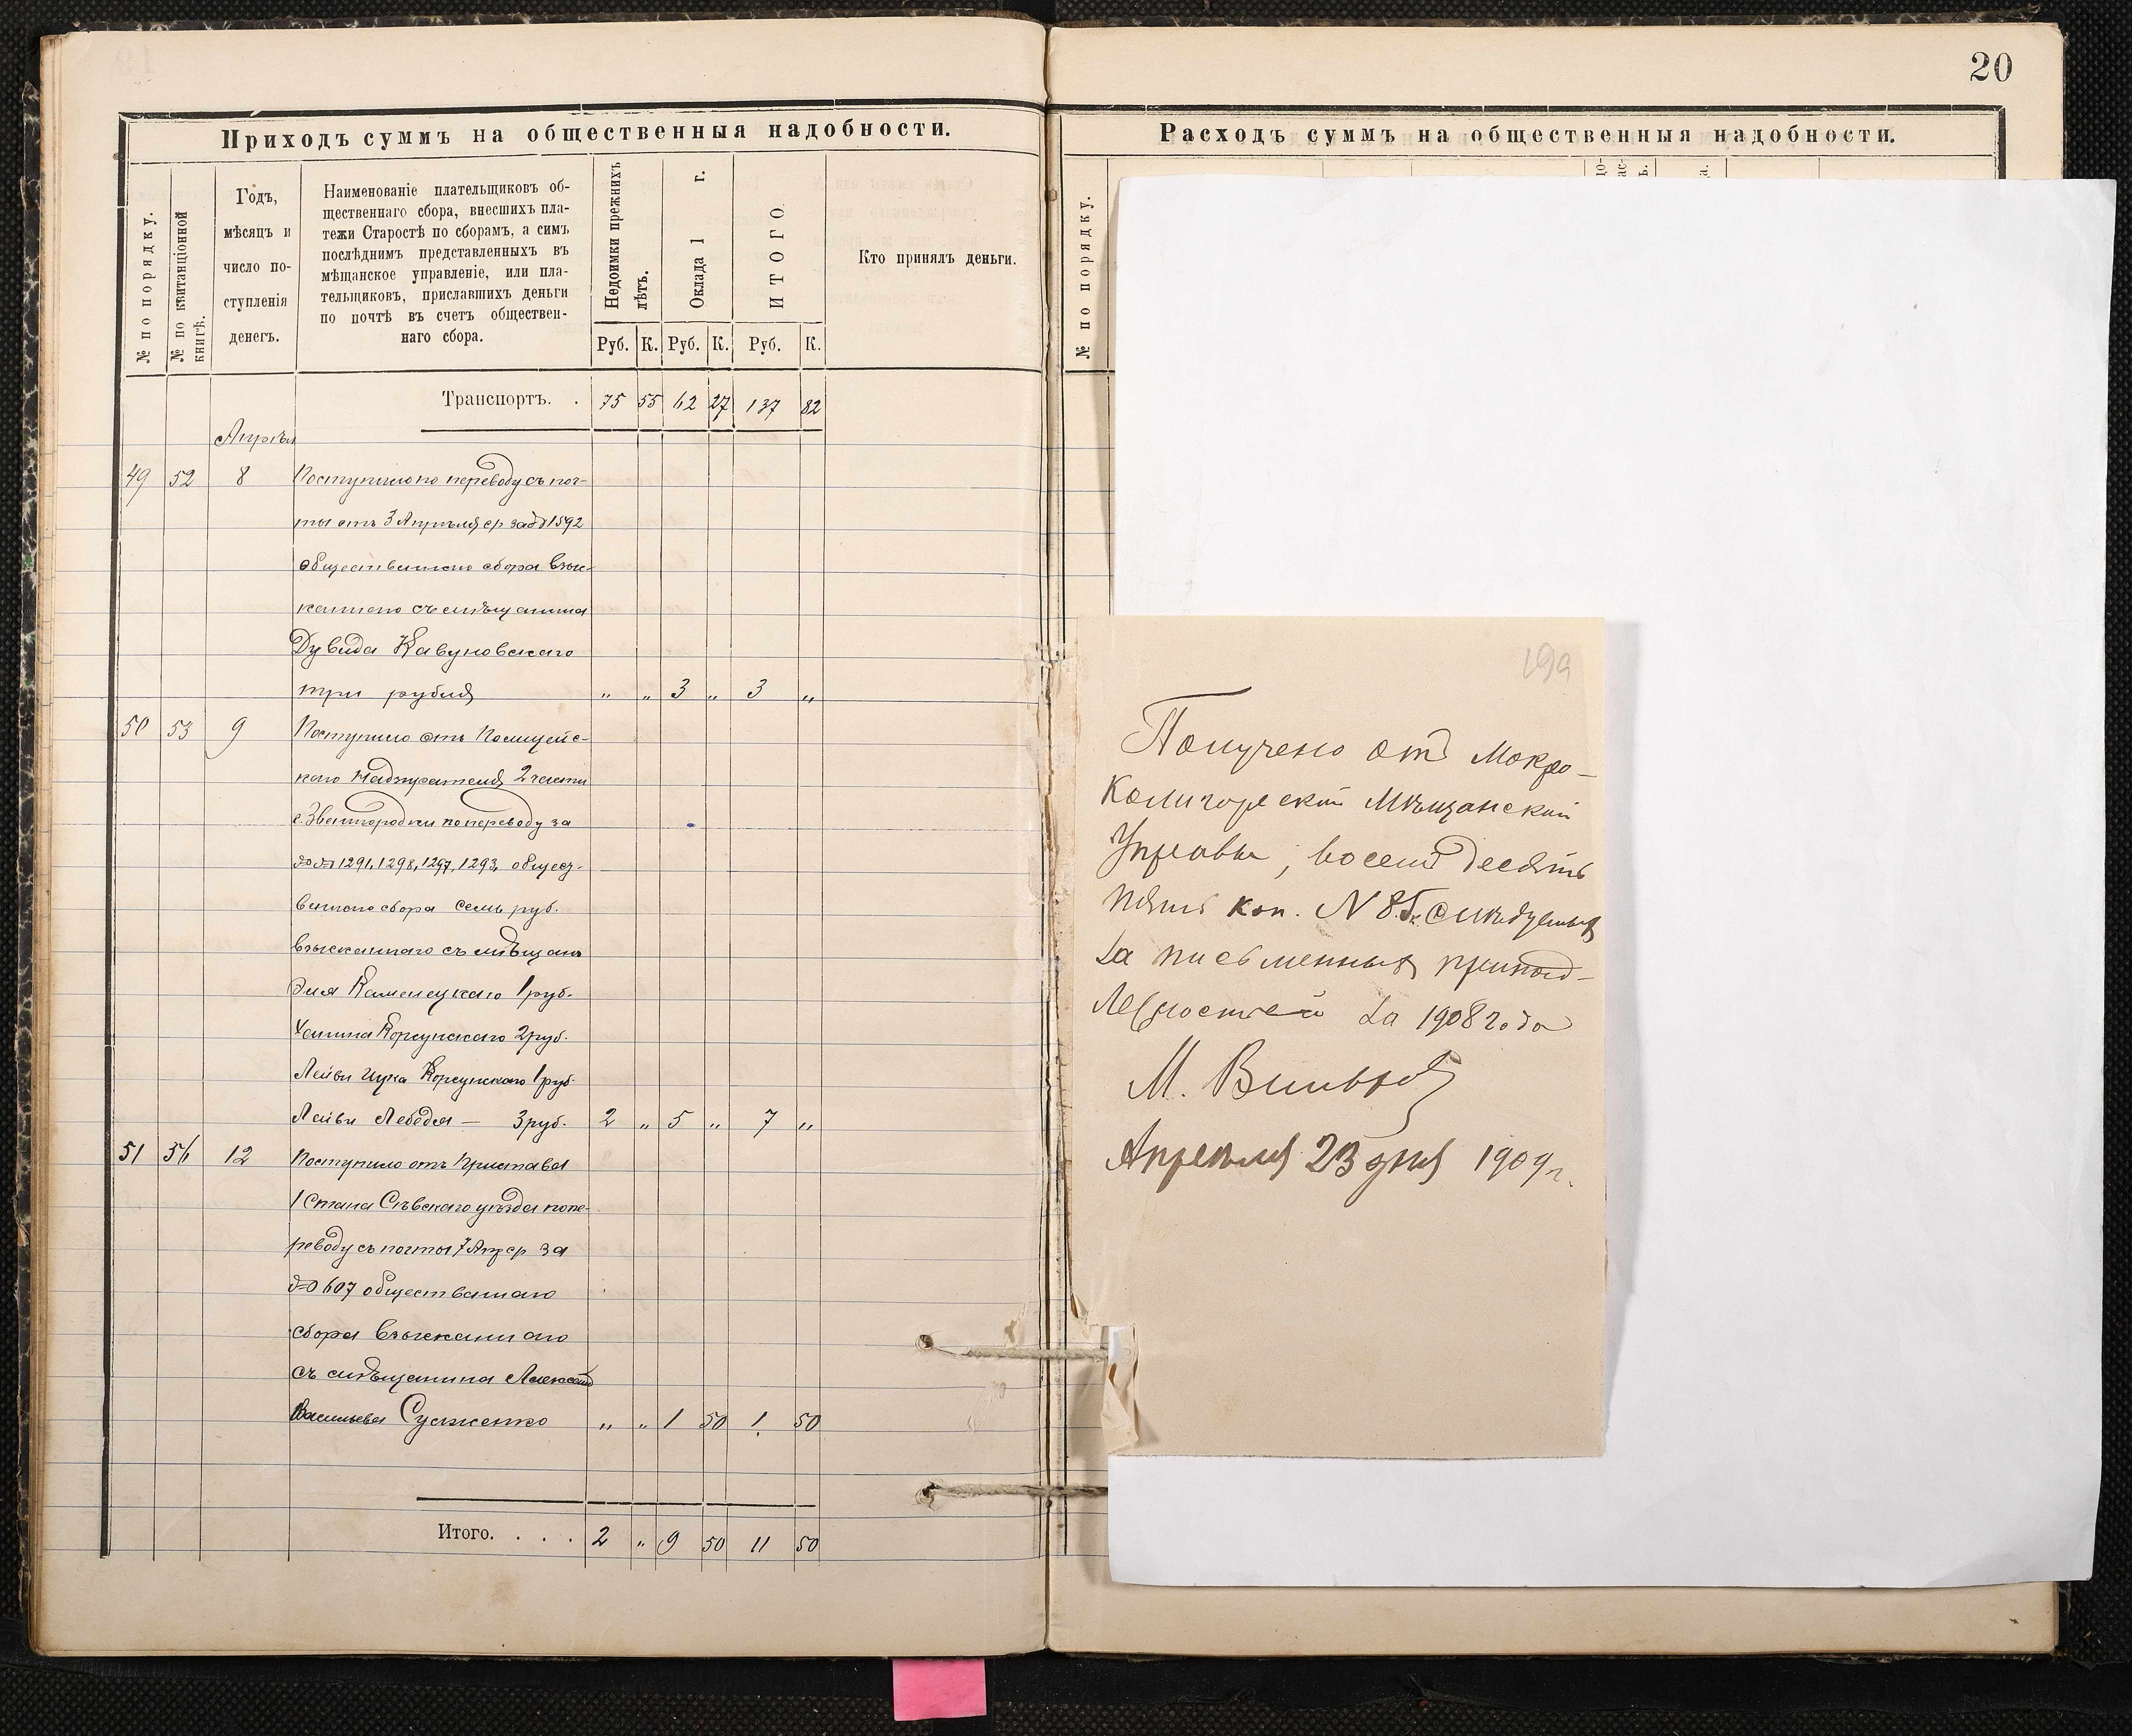 20
Приходъ суммъ на общественныя надобности.
№ по порядку.
№ по квитанціонной
книгѣ.
Годъ,
мѣсяцъ и
число по-
ступленія
денегъ.
Наименованіе плательщиковъ об-
щественнаго сбора, внесшихъ пла-
тежи Старостѣ по сборамъ, а симъ
послѣднимъ представленныхъ въ
мѣщанское управленіе, или пла-
тельщиковъ, приславшихъ деньги
по почтѣ въ счетъ обществен-
наго сбора.
Недоимки прежнихъ
лѣтъ.
Оклада 1 г.
ИТОГО
Кто принялъ деньги.
Руб. К. Руб. К. Руб. К.
Транспортъ. . 75 55 62 27 137 82
Апрѣля
49 52 8 Поступило по переводу съ поч-
ты отъ 3 Апрѣля ср за № 1592
общественнаго сбора взыс-
каннаго съ мѣщанина
Дувида Кавуновскаго
три рубля „ „ 3 „ 3 „
50 53 9 Поступило отъ Полицейс-
каго Надзирателя 2 части
г. Звенигородки по переводу за
№№ 1291, 1298, 1297, 1293, общест-
веннаго сбора семь руб.
взысканнаго съ мѣщанъ
Каменецкаго 1 руб.
Корсунскаго 2 руб.
Лейви Ицка Корсунскаго 1 руб.
Лейви Лебедя — 3 руб. 2 „ 5 „ 7 „
51 56 12 Поступило отъ Пристава
1 Стана Сѣвскаго уѣзда по пе-
реводу съ почты 7 Апр ср за
№ 607 общественнаго
сбора взысканнаго
съ мѣщанина Александ
Васильева Сулженко „ „ 1 50 1 50
Итого. . . . 2 „ 9 50 11 50
Расходъ суммъ на общественныя надобности.
№ по порядку.
199
Получено отъ Мокро-
Калигорской Мѣщанской
Управы, восемъ десятъ
пять коп. N 85к. Слѣдуемыя
за письменныя принад-
лежностей за 1908 года
М.
Апреля 23 дня 1909 г.